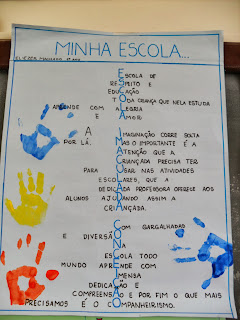 MINHA ESCOLA...
ESCOLA DE
RESPEITO E
EDUCAÇÃO
TODA CRIANÇA QUE NELA ESTUDA
APRENDE COM ALEGRIA
E AMOR
A IMAGINAÇÃO CORRE SOLTA
POR LÁ. MAS O IMPORTANTE É A
ATENÇÃO QUE A
CRIANÇADA PRECISA TER
PARA USAR NAS ATIVIDADES
ESCOLARES, QUE A
DEDICADA PROFESSORA OFERECE AOS
ALUNOS AJUDANDO ASSIM A
CRIANÇADA.
COM GARGALHADAS
E DIVERSÃO
ESCOLA TODO
MUNDO APRENDE COM
IMENSA
DEDICAÇÃO E
COMPREENSÃO E POR FIM O QUE MAIS
PRECISAMOS É O COMPANHEIRISMO.